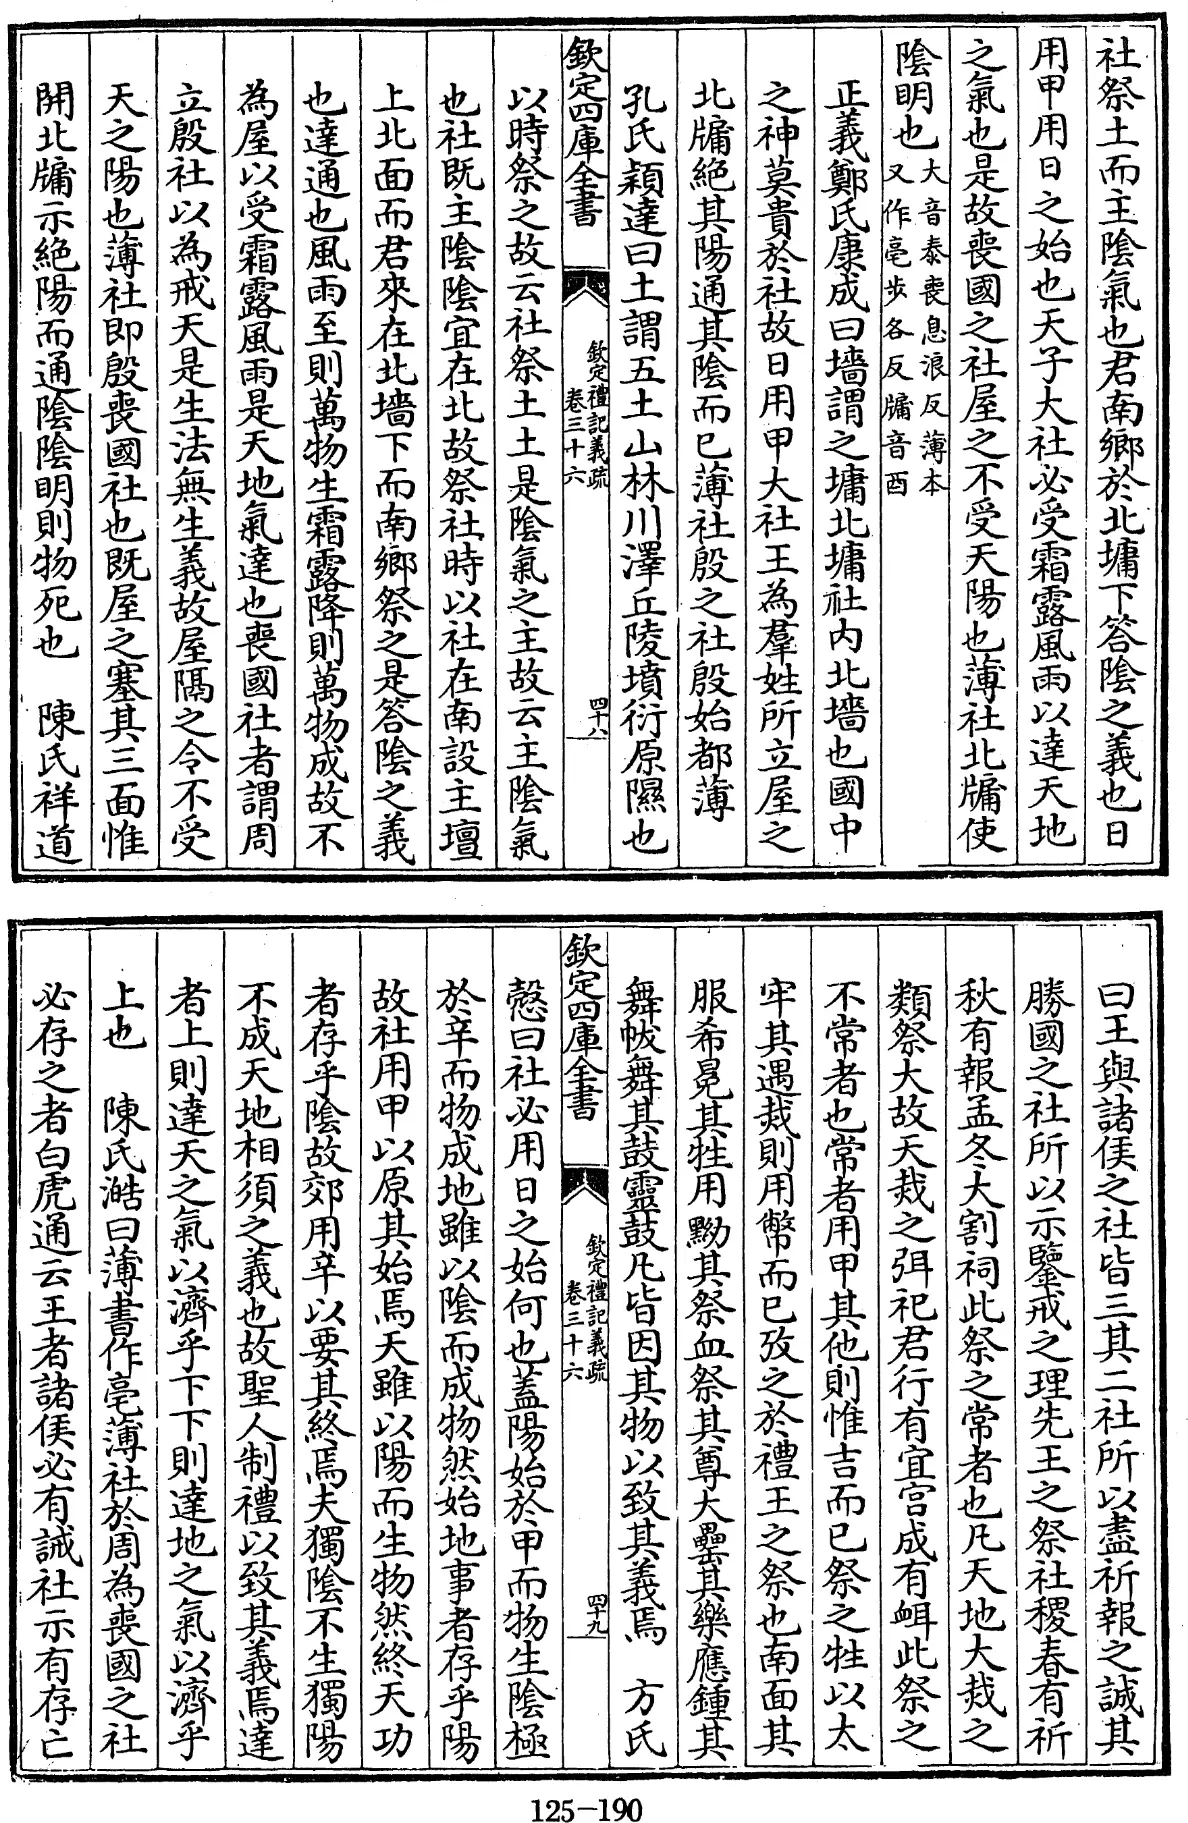 社祭土而主隂氣也君南鄉於北墉下答隂之義也日
用甲用日之始也天子大社必受霜露風雨以達天地
之氣也是故喪國之社屋之不受天陽也薄社北牖使
隂明也大音泰喪息浪反薄本
又作亳步各反牖音酉
正義鄭氏康成曰墻謂之墉北墉社内北墻也國中
之神莫貴於社故日用甲大社王為羣姓所立屋之
北牖絶其陽通其隂而已薄社殷之社殷始都薄
孔氏穎達曰土謂五土山林川澤丘陵墳衍原隰也
欽定四庫全書
欽定禮記義疏
卷三十六
四十八
以時祭之故云社祭土土是隂氣之主故云主隂氣
也社既主隂隂宜在北故祭社時以社在南設主壇
上北面而君來在北墻下而南鄉祭之是答隂之義
也達通也風雨至則萬物生霜露降則萬物成故不
為屋以受霜露風雨是天地氣達也喪國社者謂周
立殷社以為戒天是生法無生義故屋隔之令不受
天之陽也薄社即殷喪國社也既屋之塞其三面惟
開北牖示絶陽而通隂隂明則物死也　陳氏祥道
曰王與諸侯之社皆三其二社所以盡祈報之誠其
勝國之社所以示鑒戒之理先王之祭社稷春有祈
秋有報孟冬大割祠此祭之常者也凡天地大烖之
類祭大故天烖之弭祀君行有宜宫成有衈此祭之
不常者也常者用甲其他則惟吉而已祭之牲以太
牢其遇烖則用幣而已攷之於禮王之祭也南面其
服希冕其牲用黝其祭血祭其尊大罍其樂應鍾其
舞帗舞其鼓靈鼓凡皆因其物以致其義焉　方氏
欽定四庫全書
欽定禮記義疏
卷三十六
四十九
慤曰社必用日之始何也蓋陽始於甲而物生隂極
於辛而物成地雖以隂而成物然始地事者存乎陽
故社用甲以原其始焉天雖以陽而生物然終天功
者存乎隂故郊用辛以要其終焉夫獨隂不生獨陽
不成天地相須之義也故聖人制禮以致其義焉達
者上則達天之氣以濟乎下下則達地之氣以濟乎
上也　陳氏澔曰薄書作亳薄社於周為喪國之社
必存之者白虎通云王者諸侯必有誡社示有存亡
125-190